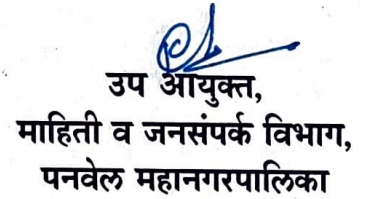 उप आयुक्त,
माहिती व जनसंपर्क विभाग,
पनवेल महानगरपालिका